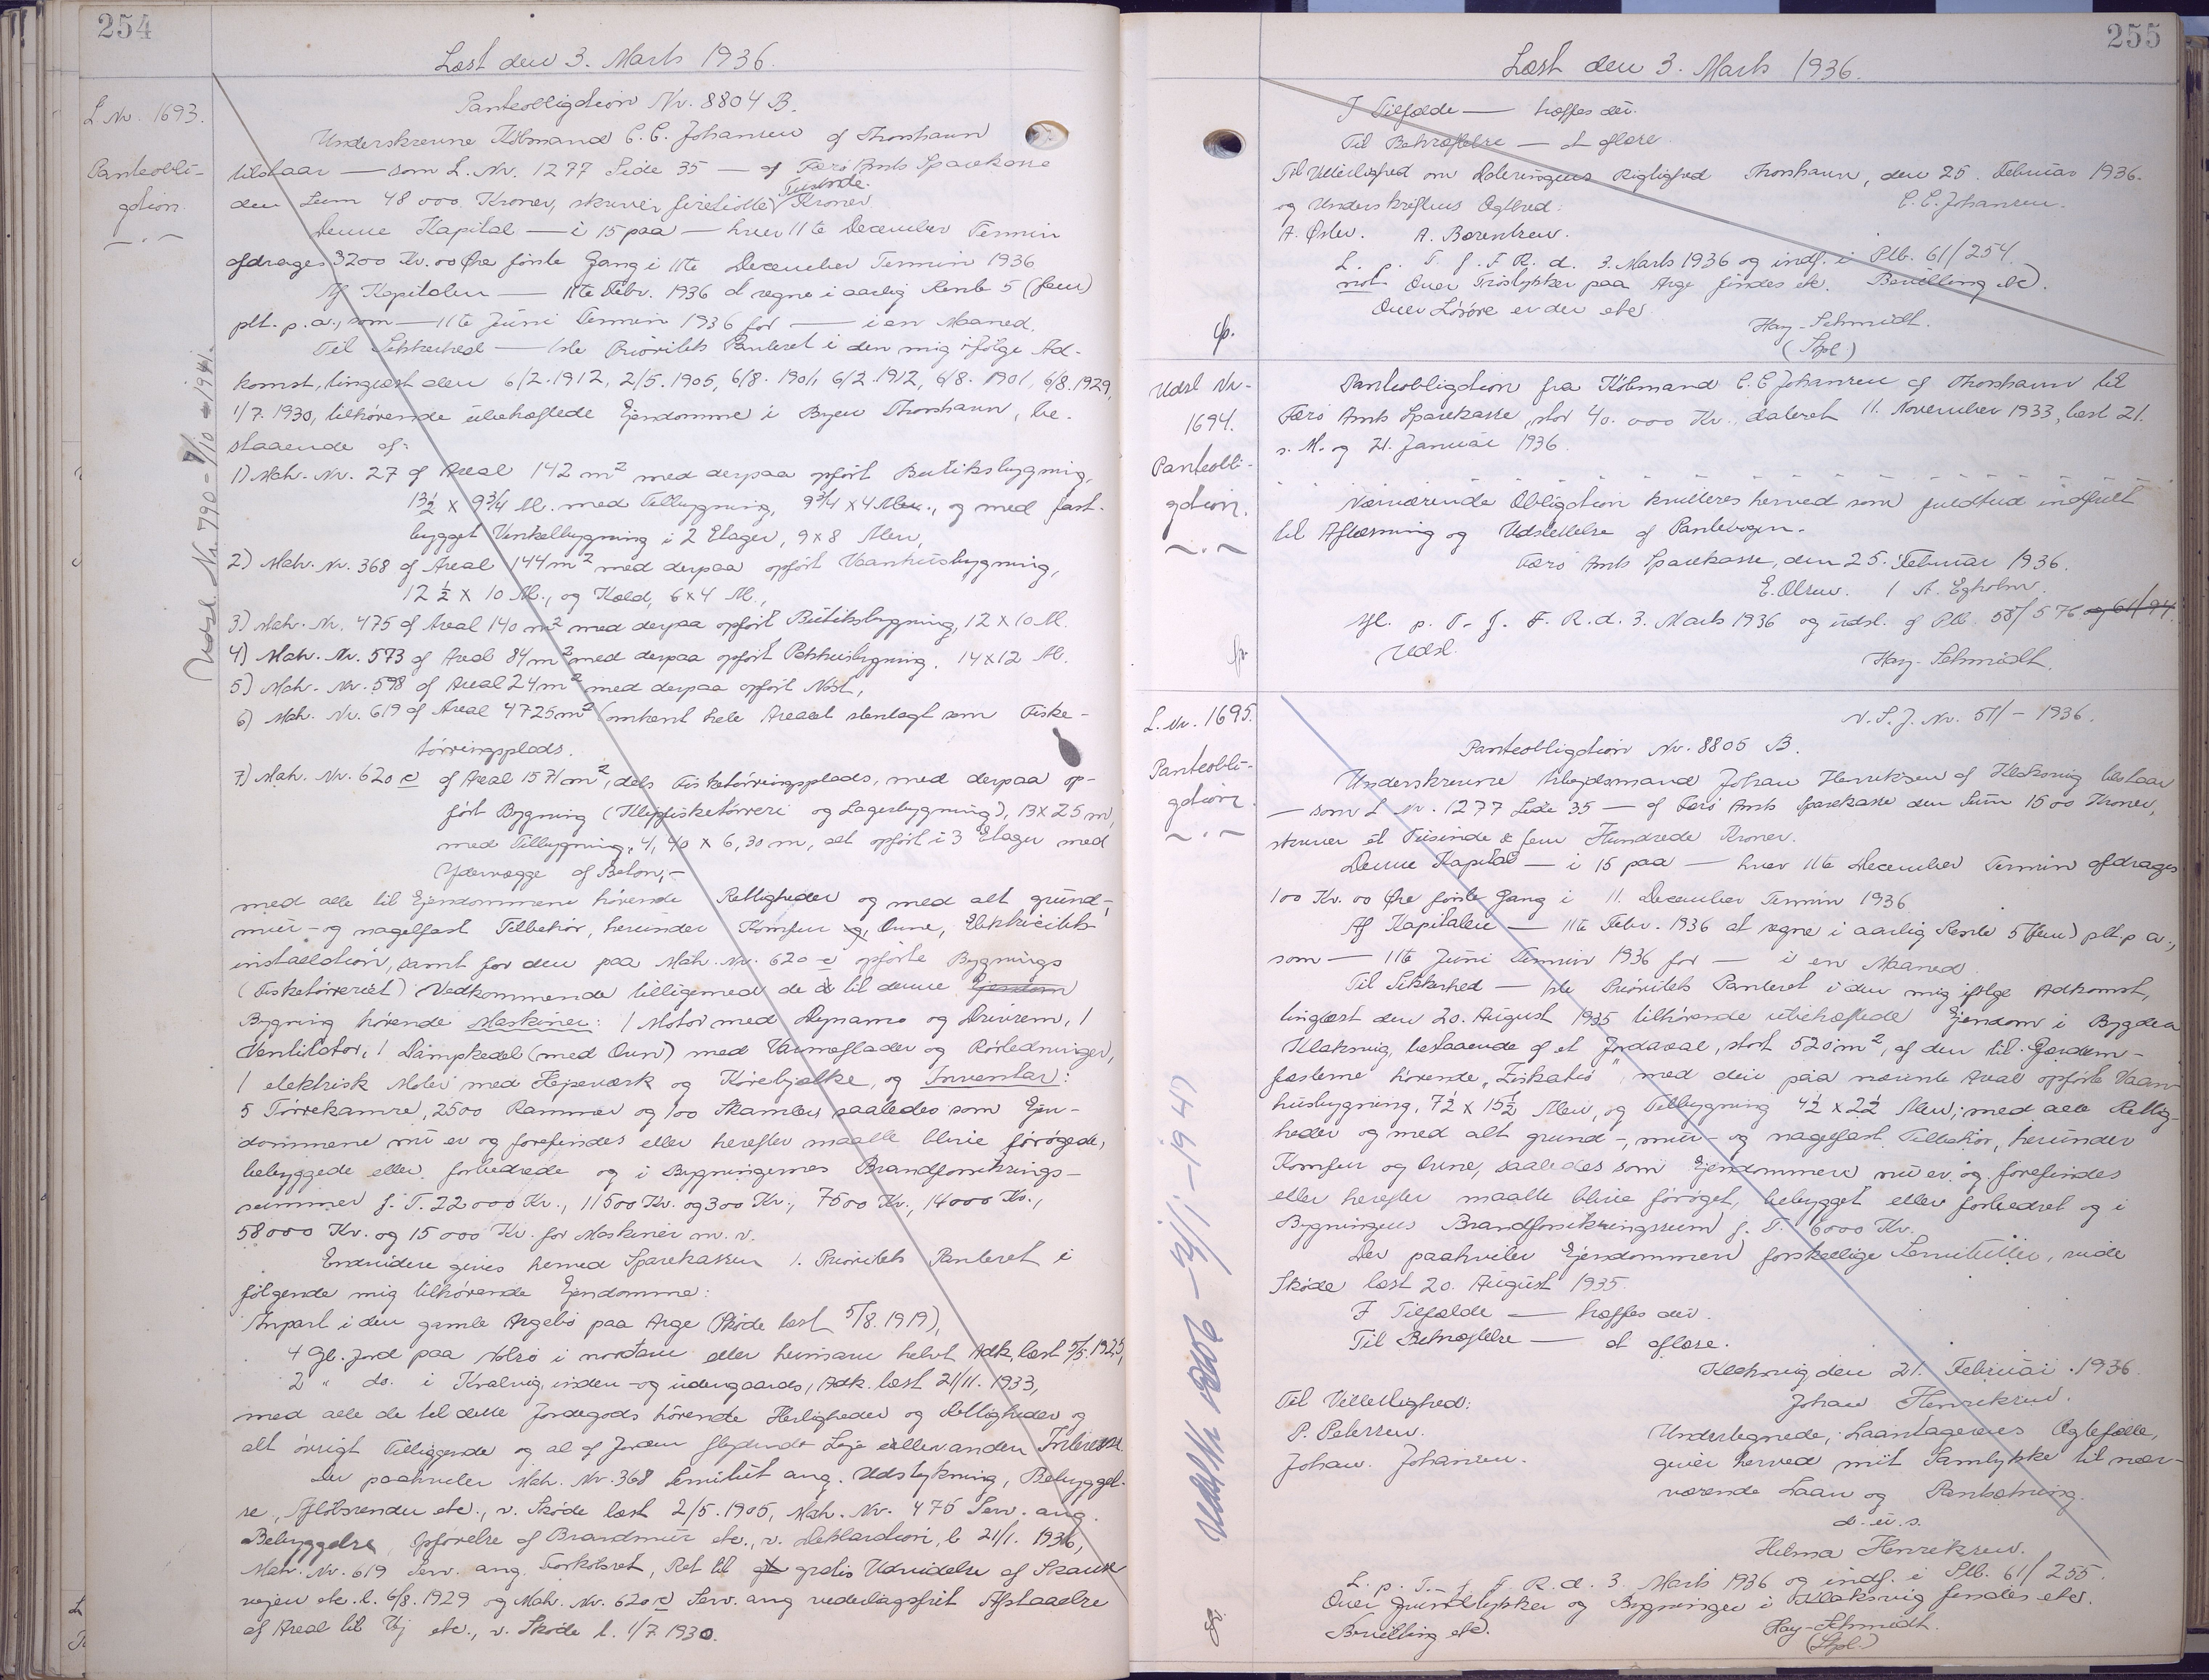 254
Læst den 3. Marts 1936.
L Nr. 1693.
Panteobli-
gation.
Udsl. Nr. 790 - 7/10 - 1941.
Panteobligation Nr. 8804 B.
Underskrevne Købmand C. C. Johansen af Thorshavn
tilstaar — som L. Nr. 1277 Side 35 — af Færø Amts Sparekasse
den Sum 48 000 Kroner, skriver firetiotte Tusinde Kroner
Denne Kapital — i 15 paa — hver 11te December Termin
afdrages 3200 Kr. 00 Øre første Gang i 11te December Termin 1936
Af Kapitalen — 11te Febr. 1936 at regne i aarlig Rente 5 (fem)
pct. p. a., som — 11te Juni Termin 1936 for — i en Maaned.
Til Sikkerhed — 1ste Prioritets Panteret i den mig ifølge Ad-
komst, tinglæst den 6/2. 1912, 2/5. 1905, 6/8. 1901, 6/2. 1912, 6/8. 1901, 6/8. 1929,
1/7. 1930, tilhørende ubehæftede Ejendomme i Byen Thorshavn, be-
staaende af:
1) Matr. Nr. 27 af Areal 142 m² med derpaa opført Butiksbygning,
13½ x 9¾ Al. med Tilbygning, 9¾ x 4 Alen., og med fast-
bygget Vinkelbygning i 2 Etager, 9 x 8 Alen,
2) Matr. Nr. 368 af Areal 144 m² med derpaa opført Vaanhusbygning,
12½ x 10 Al., og Kæld, 6x4 Al.,
3) Matr. Nr. 475 af Areal 140 m² med derpaa opført Butiksbygning, 12 x 10 Al.
4) Matr. Nr. 573 af Areal 84 m² med derpaa opført Pakhusbygning. 14x12 Al.
5) Matr. Nr. 598 af Areal 24 m² med derpaa opført Nøst,
6) Matr. Nr. 619 af Areal 4725 m² (omtrent hele Arealet stenlagt som Fiske-
tørringsplads.
7) Matr. Nr. 620 c af Areal 1571 m², dels Fisketørringsplads, med derpaa op-
ført Bygning (Klipfisketørreri og Lagerbygning), 13 x 25 m,
med Tilbygning, 4,40 x 6,30 m, alt opført i 3 Etager med
Ydervægge af Beton, -
med alle til Ejendommene hørende Rettigheder og med alt grund-,
mur- og nagelfast Tilbehør, herunder Komfur og Ovne, Elektricitets
installation, samt for den paa Matr. Nr. 620 c opførte Bygnings
(Fisketørreriet) Vedkommende tilligemed de til denne Ejendom
Bygning hørende Maskiner: 1 Motor med Dynamo og Drivrem, 1
Ventilator, 1 Dampkedel (med Ovn) med Varmeflader og Rørledninger,
1 elektrisk Motor med Hejseværk og Kørebjælke, og Inventar:
5 Tørrekamre, 2500 Rammer og 100 Skamler, saaledes som Ejen-
dommene nu er og forefindes eller herefter maatte blive forøgede,
bebyggede eller forbedrede og i Bygningernes Brandforsikrings-
summer f. T. 22 000 Kr., 11500 Kr. og 300 Kr., 7500 Kr., 14000 Kr.,
58000 Kr. og 15 000 Kr. for Maskiner m. v.
Endvidere gives herved Sparekassen 1. Prioritets Panteret i
følgende mig tilhørende Ejendomme:
Anpart i den gamle Argebø paa Arge (Skøde læst 5/8. 1919),
4 Gl. Jord paa Nolsø i nordare eller heimare helvt Adk. læst 5/5. 1925,
2 " do. i Kvalvig, inden- og udengaards, Adk. læst 21/11. 1933,
med alle de til dette Jordegods hørende Herligheder og Rettigheder og
alt øvrigt Tilliggende og al af Jorden flydende Leje eller anden Interesse.
Der paahviler Matr. Nr. 368 Servitut ang. Udstykning, Bebyggel-
se, Afløbsrender etc., v. Skøde læst 2/5. 1905, Matr. Nr. 475 Serv. ang.
Bebyggelse, Opførelse af Brandmur etc., v. Deklaration, l. 21/1. 1936,
Matr. Nr. 619 Serv. ang. Forkøbsret, Ret til gratis Udvidelse af Skanse
vejen etc. l. 6/8. 1929 og Matr. Nr. 620 c Serv. ang. vederlagsfrit Afstaaelse
af Areal til Vej etc., v. Skøde l. 1/7 1930.
255
Læst den 3. Marts 1936.
I Tilfælde — træffes der.
Til Bekræftelse — at aflæse.
Til Vitterlighed om Dateringens Rigtighed
og Underskriftens Ægthed:
Thorshavn, den 25. Februar 1936.
C. C. Johansen.
A. Øster. A. Berentsen.
L. p. T. f. F. R. d. 3. Marts 1936 og indf. i Ptb. 61/254.
not. Over Træstykker paa Arge findes etc. Bevilling etc).
Over Løsøre er der etc
Hay-Schmidt.
(Stpl)
Udsl Nr.
1694.
Panteobli-
gation.
Panteobligation fra Købmand C. C. Johansen af Thorshavn til
Færø Amts Sparekasse, stor 40.000 Kr. dateret 11. November 1933, læst 21.
s. M. og 21. Januar 1936.
Nærværende Obligation kvitteres herved som fuldtud indfriet
til Aflæsning og Udslettelse af Pantebogen.
Færø Amts Sparekasse, den 25. Februar 1936.
E. Olsen. / A. Egholm.
Afl. p. T. f. F. R. d. 3. Marts 1936 og udsl. af Ptb. 58/576 og 61/94.
Udsl.
Hay-Schmidt.
L. Nr. 1695.
Panteobli-
gation.
N. S. J. Nr. 51/ - 1936.
Panteobligation Nr. 8805 B.
Underskrevne Arbejdsmand Johan Henriksen af Klaksvig tilstaar
— som L Nr. 1277 Side 35 — af Færø Amts Sparekasse den Sum 1500 Kroner,
skriver et Tusinde & fem Hundrede Kroner.
Denne Kapital — i 15 paa — hver 11te December Termin afdrages
100 Kr. 00 Øre første Gang i 11. December Termin 1936
Af Kapitalen — 11te Febr. 1936 at regne i aarlig Rente 5 (fem) pct. p. a.,
som — 11te Juni Termin 1936 for — i en Maaned.
Til Sikkerhed — 1ste Prioritets Panteret i den mig ifølge Adkomst,
tinglæst den 20. August 1935 tilhørende ubehæftede Ejendom i Bygden
Klaksvig, bestaaende af et Jordareal, stort 520 m², af den til Gærdem-
fæsterne hørende med den paa nævnte Areal opførte Vaan-
husbygning, 7½ x 15½ Alen, og Tilbygning 4½ x 2½ Alen; med alle Rettig-
heder og med alt grund-, mur- og nagelfast Tilbehør, herunder
Komfur og Ovne, saaledes som Ejendommen nu er og forefindes
eller herefter maatte blive forøget, bebygget eller forbedret og i
Bygningens Brandforsikringssum f. T. 6000 Kr.
Der paahviler Ejendommen forskellige Servitutter, vide
Skøde læst 20. August 1935.
I Tilfælde — træffes der.
Til Bekræftelse — at aflæse.
Klaksvig den 21. Februar 1936
Johan Henriksen.
Til Vitterlighed:
P. Petersen.
Johan. Johansen.
Undertegnede, Laantagerens Ægtefælle,
giver herved mit Samtykke til nær-
værende Laan og Pantsætning.
d. u. s.
Helma Henriksen.
L. p. T. f. F. R. d. 3. Marts 1936 og indf. i Ptb. 61/255.
Over Grundstykker og Bygninger i Klaksvig findes etc.
Bevilling etc.
Hay-Schmidt.
(Stpl.)